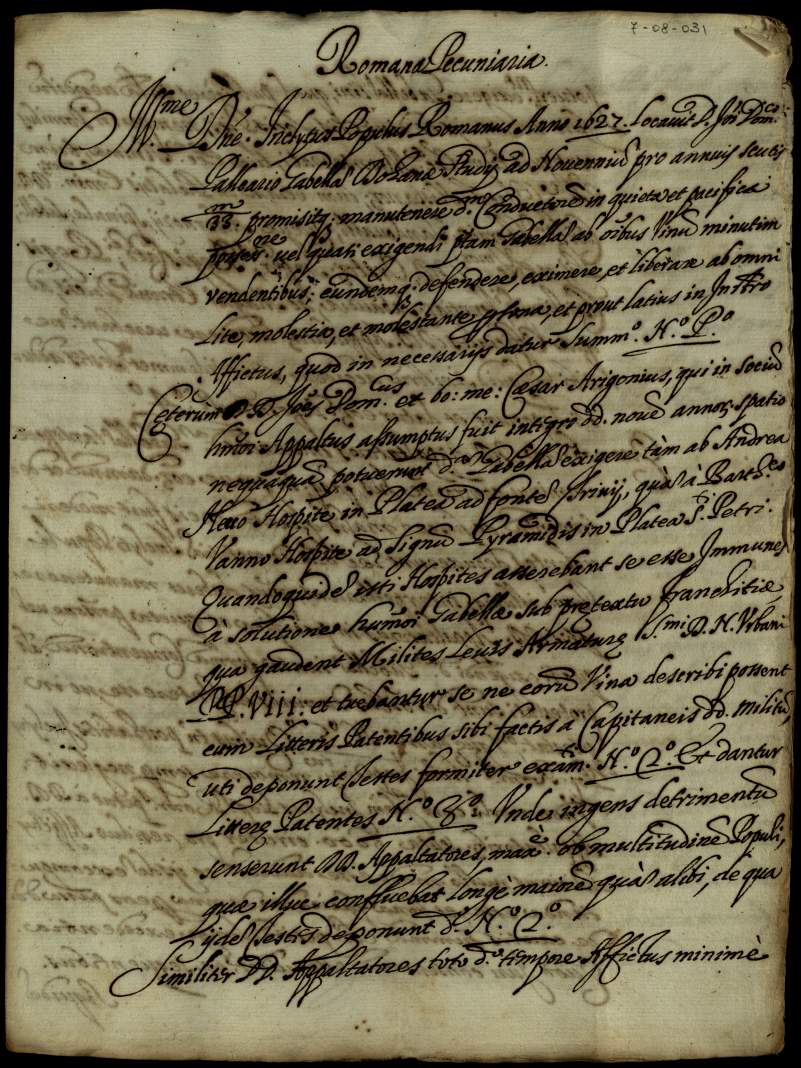 7-08-031
Romana Pecuniaria.
Ill.me Dne. Inclytus Populus Romanus Anno 1627. Locavit D. Joi Dom.co
Palleario Gabellā Dohanæ Studij ad Novenniū pro annuis scutis
m/33. promisitq; manutenere d.m Conductorē in quieta et pacifica
posses.ne vel quasi exigendi ptam Gabellā ab oībus Vinū minutim
vendentibus; eundemq; defendere, eximere, et liberare ab omni
Lite, molestia, et molestante persona, et prout latius in Instr̃o
Affictus, quod in necessarijs datur Summ.o N.o P.o
Ceterum DD. Joēs Dom.cus et bo: me: Cæsar Arigonius, qui in sociū
hmōi Appaltus assumptus fuit integro dd. novē annor. spatio
nequaquā potuerunt d.am Gabellā exigere tàm ab Andrea
Hospite in Platea ad Fontē Trivij, quā à Barth.eo
Vanno Hospite ad Signū Pyramidis in Platea S.ti Petri.
Quandoquidē isti Hospites asserebant se esse Immunes
à solutione hmōi Gabellæ sub prętextu franchitiæ,
qua gaudent Milites Levis Armaturę S.mi D. N. Urbani
PP. VIII: et tuebantur se ne eorū Vina describi possent
cum Litteris Patentibus sibi factis à Capitaneis dd. militū,
uti deponunt Testes formiter exāti N.o 2.o Et dantur
Litterę Patentes N.o 3.o Unde ingens detrimentū
senserunt DD. Appaltatores, maxē ob multitudinē Populi,
quæ illuc confluebat longè maiorē quā alibi, de qua
ijdē Testes deponunt d.o N.o 2.o
Similiter DD. Appaltatores toto d.o tempore Affictus minimè